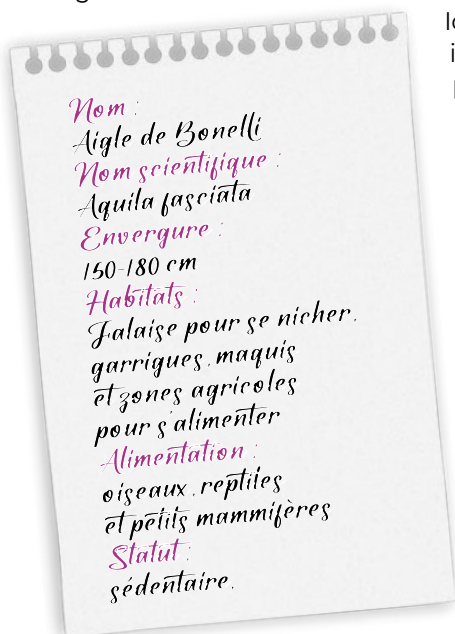 Nom :
Aigle de Bonelli
Nom scientifique :
Aquila fasciata
Envergure :
150-180 cm
Habitats :
Falaise pour se nicher,
garrigues, maquis
et zones agricoles
pour s'alimenter
Alimentation :
oiseaux, reptiles
et petits mammifères
Statut :
sédentaire.